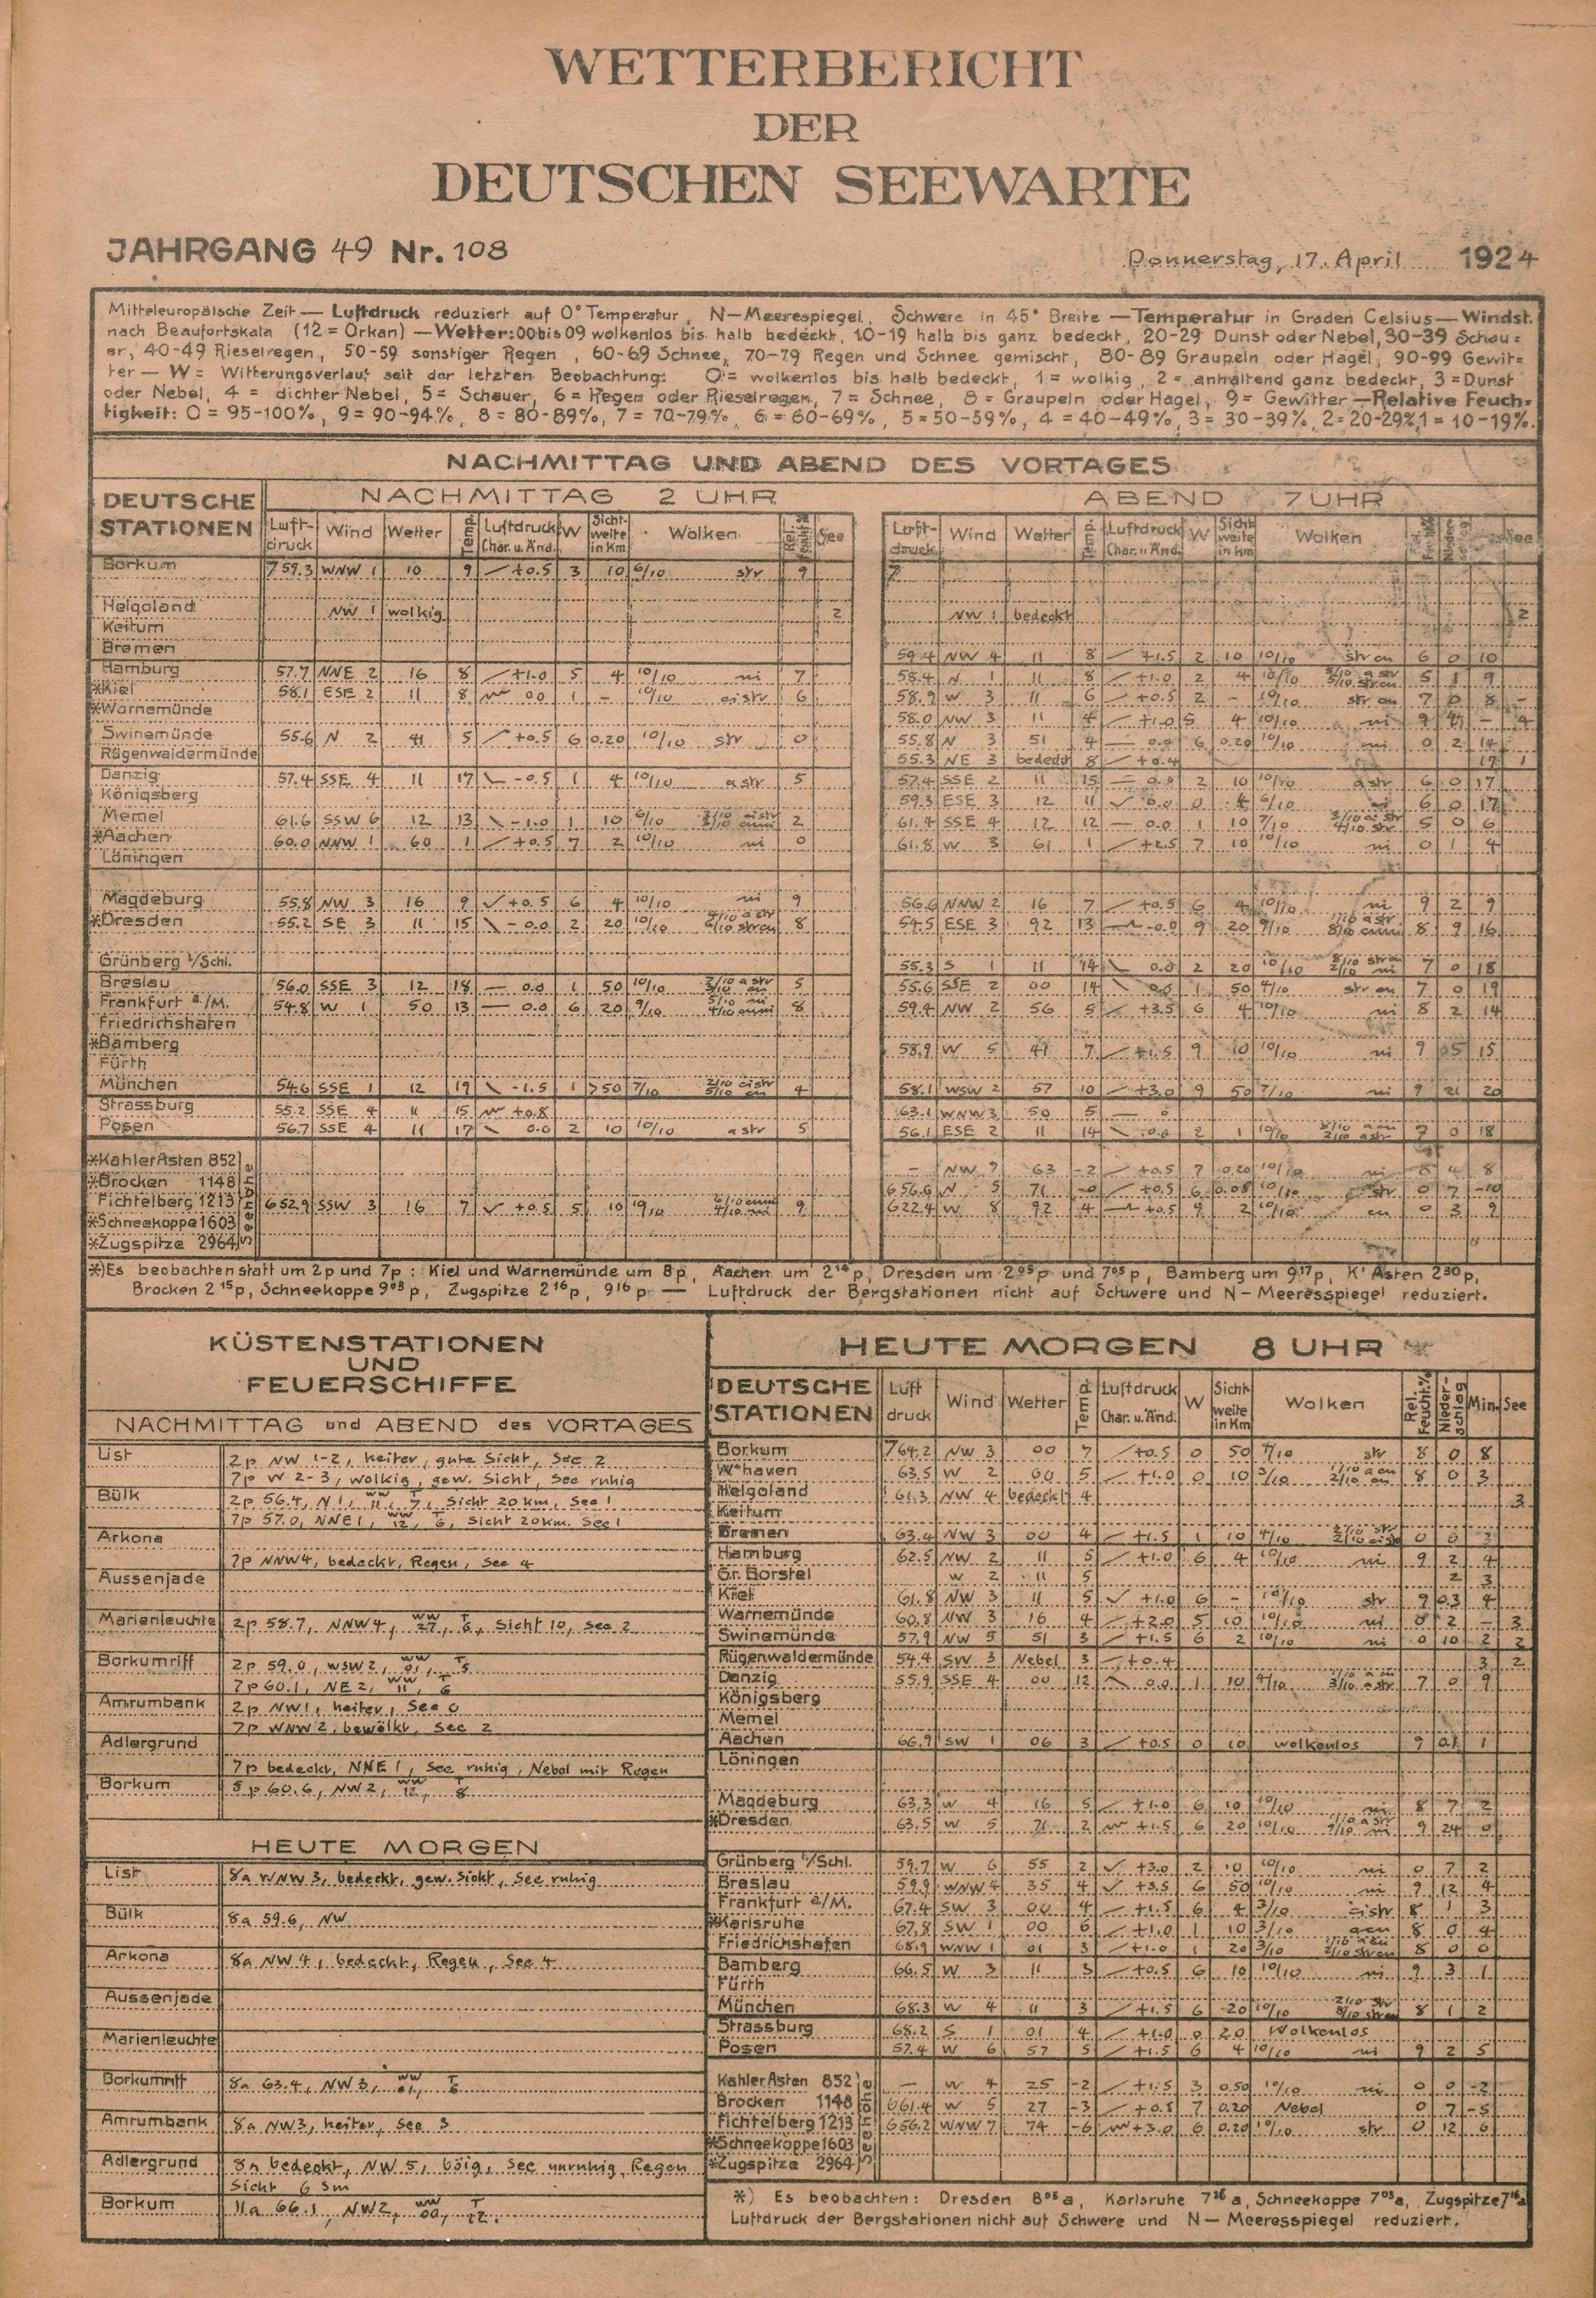 WETTERBERICHT
DER
DEUTSCHEN SEEWARTE
JAHRGANG 49 Nr. 108 Donnerstag, 17. April 1924
Mitteleuropäische Zeit — Luftdruck reduziert auf 0° Temperatur, N-Meerespiegel, Schwere in 45° Breite — Temperatur in Graden Celsius — Windst.
nach Beaufortskala (12 = Orkan) — Wetter: 00 bis 09 wolkenlos bis halb bedeckt, 10-19 halb bis ganz bedeckt, 20-29 Dunst oder Nebel, 30-39 Schau=
er, 40-49 Rieselregen, 50-59 sonstiger Regen, 60-69 Schnee, 70-79 Regen und Schnee gemischt, 80-89 Graupeln oder Hagel, 90-99 Gewit=
ter — W = Witterungsverlauf seit der letzten Beobachtung: 0 = wolkenlos bis halb bedeckt, 1 = wolkig, 2 = anhaltend ganz bedeckt, 3 = Dunst
oder Nebel, 4 = dichter Nebel, 5 = Schauer, 6 = Regen oder Rieselregen, 7 = Schnee, 8 = Graupeln oder Hagel, 9 = Gewitter — Relative Feuch=
tigkeit: 0 = 95-100%, 9 = 90-94%, 8 = 80-89%, 7 = 70-79%, 6 = 60-69%, 5 = 50-59%, 4 = 40-49%, 3 = 30-39%, 2 = 20-29%, 1 = 10-19%.
NACHMITTAG UND ABEND DES VORTAGES
DEUTSCHE STATIONEN NACHMITTAG 2 UHR ABEND 7 UHR
Luftdruck Wind Wetter Temp. Luftdruck Char. u. Änd. W Sichtweite in Km Wolken See
Luftdruck Wind Wetter Temp. Luftdruck Char. u. Änd. W Sichtweite in Km Wolken See
Borkum 759.3 WNW 1 10 9 +0.5 3 10 6/10 str 9 7
Helgoland NW 1 wolkig 2 NW 1 bedeckt 2
Keitum
Bremen 59.4 NW 4 11 8 +1.5 2 10 10/10 str cu 6 0 10
Hamburg 57.7 NNE 2 16 8 +1.0 5 4 10/10 ni 7 58.4 N 1 11 8 +1.0 2 4 10/10 5 1 9
*Kiel 58.1 ESE 2 11 8 0.0 1 - 10/10 cistr 6 58.9 W 3 11 6 +0.5 2 - 10/10 str cu 7 0 8 -
*Warnemünde 58.0 NW 3 11 4 +1.0 5 4 10/10 ni 9 - 4
Swinemünde 55.6 N 2 41 5 +0.5 6 0.20 10/10 str 0 55.8 N 3 51 4 0.0 6 0.20 10/10 ni 0 2 14
Rügenwaldermünde 55.3 NE 3 bedeckt 8 +0.4 17 1
Danzig 57.4 SSE 4 11 17 -0.5 1 4 10/10 astr 5 57.4 SSE 2 11 15 0.0 2 10 10/10 astr 6 0 17
Königsberg 59.3 ESE 3 12 11 0.0 0 4 6/10 6 0 17
Memel 61.6 SSW 6 12 13 -1.0 1 10 6/10 2 61.4 SSE 4 12 12 0.0 1 10 7/10 5 0 6
*Aachen 60.0 NNW 1 60 1 +0.5 7 2 10/10 ni 0 61.8 W 3 61 1 +2.5 7 10 10/10 ni 0 1 4
Löningen
Magdeburg 55.8 NW 3 16 9 +0.5 6 4 10/10 ni 9 56.6 NNW 2 16 7 +0.5 6 4 10/10 ni 9 2 9
*Dresden 55.2 SE 3 11 15 -0.0 2 20 10/10 4/10 astr 6/10 strcu 8 54.5 ESE 3 92 13 -0.0 9 20 9/10 8 9 16
Grünberg i/Schl. 55.3 S 1 11 14 0.0 2 20 10/10 8/10 strcu 2/10 ni 7 0 18
Breslau 56.0 SSE 3 12 18 0.0 1 50 10/10 5 55.6 SSE 2 00 14 0.0 1 50 4/10 str cu 7 0 19
Frankfurt a/M. 54.8 W 1 50 13 0.0 6 20 9/10 5/10 ni 4/10 cuni 8 59.4 NW 2 56 5 +3.5 6 4 10/10 ni 8 2 14
Friedrichshafen
*Bamberg 58.9 W 5 41 7 +1.5 9 10 10/10 ni 9 0.5 15
Fürth
München 54.6 SSE 1 12 19 -1.5 1 >50 7/10 2/10 cistr 5/10 cu 4 58.1 WSW 2 57 10 +3.0 9 50 7/10 ni 9 21 20
Strassburg 55.2 SSE 4 11 15 +0.8 63.1 WNW 3 50 5
Posen 56.7 SSE 4 11 17 0.0 2 10 10/10 astr 5 56.1 ESE 2 11 14 0.0 2 1 10/10 7 0 18
*Kahler Asten 852 - NW 7 63 -2 +0.5 7 0.20 10/10 ni 8 4 8
*Brocken 1148 656.6 N 5 71 -0 +0.5 6 0.05 10/10 str 0 7 -10
Fichtelberg 1213 652.9 SSW 3 16 7 +0.5 5 10 6/10 cuni 4/10 ni 9 622.4 W 8 92 4 +0.5 9 2 10/10 cu 0 3 9
*Schneekoppe 1603
*Zugspitze 2964
Seehöhe
*) Es beobachten statt um 2p und 7p: Kiel und Warnemünde um 8p, Aachen um 2¹⁴p, Dresden um 2⁰⁵p und 7⁰⁵p, Bamberg um 9¹⁷p, K' Asten 2³⁰p,
Brocken 2¹⁵p, Schneekoppe 9⁰³p, Zugspitze 2¹⁶p, 9¹⁶p — Luftdruck der Bergstationen nicht auf Schwere und N-Meeresspiegel reduziert.
KÜSTENSTATIONEN
UND
FEUERSCHIFFE
NACHMITTAG und ABEND des VORTAGES
List 2p NW 1-2, heiter, gute Sicht, See 2
7p W 2-3, wolkig, gew. Sicht, See ruhig
Bülk 2p 56.4, N 1, ww 11, T 7, Sicht 20 km, See 1
7p 57.0, NNE 1, ww 12, T 6, Sicht 20 km. See 1
Arkona
7p NNW 4, bedeckt, Regen, See 4
Aussenjade
Marienleuchte 2p 58.7, NNW 4, ww 27, T 6, Sicht 10, See 2
Borkumriff 2p 59.0, WSW 2, ww 01, T 5
7p 60.1, NE 2, ww 11, T 6
Amrumbank 2p NW 1, heiter, See 0
7p WNW 2, bewölkt, See 2
Adlergrund
7p bedeckt, NNE 1, See ruhig, Nebel mit Regen
Borkum 5p 60.6, NW 2, ww 12, T 8
HEUTE MORGEN
List 8a WNW 3, bedeckt, gew. Sicht, See ruhig
Bülk 8a 59.6, NW
Arkona 8a NW 4, bedeckt, Regen, See 4
Aussenjade
Marienleuchte
Borkumriff 8a 63.4, NW 3, ww 01, T 6
Amrumbank 8a NW 3, heiter, See 3
Adlergrund 8a bedeckt, NW 5, böig, See unruhig, Regen
Sicht 6 Sm
Borkum 11a 66.1, NW 2, ww 00, T 12.
HEUTE MORGEN 8 UHR
DEUTSCHE STATIONEN Luftdruck Wind Wetter Temp. Luftdruck Char. u. Änd. W Sichtweite in Km Wolken Rel. Feucht.% Niederschlag Min. See
Borkum 764.2 NW 3 00 7 +0.5 0 50 4/10 str 8 0 8
W'haven 63.5 W 2 00 5 +1.0 0 10 3/10 1/10 acu 2/10 cu 8 0 3
Helgoland 61.3 NW 4 bedeckt 4 3
Keitum
Bremen 63.4 NW 3 00 4 +1.5 1 10 4/10 0 0 3
Hamburg 62.5 NW 2 11 5 +1.0 6 4 10/10 ni 9 2 4
Gr. Borstel W 2 11 5 2 3
Kiel 61.8 NW 3 11 5 +1.0 6 - 10/10 str 9 0.3 4
Warnemünde 60.8 NW 3 16 4 +2.0 5 10 10/10 ni 0 2 - 3
Swinemünde 57.9 NW 5 51 3 +1.5 6 2 10/10 ni 0 10 2 2
Rügenwaldermünde 54.4 SW 3 Nebel 3 +0.4 3 2
Danzig 55.9 SSE 4 00 12 0.0 1 10 4/10 1/10 acu 3/10 astr 7 0 9
Königsberg
Memel
Aachen 66.9 SW 1 06 3 +0.5 0 10 wolkenlos 9 0.1 1
Löningen
Magdeburg 63.3 W 4 16 5 +1.0 6 10 10/10 ni 8 7 2
*Dresden 63.5 W 5 71 2 +1.5 6 20 10/10 1/10 astr 9/10 ni 9 24 0
Grünberg i/Schl. 59.7 W 6 55 2 +3.0 2 10 10/10 ni 0 7 2
Breslau 59.9 WNW 4 35 4 +3.5 6 50 10/10 ni 9 12 4
Frankfurt a/M. 67.4 SW 3 00 4 +1.5 6 4 3/10 cistr 8 1 3
*Karlsruhe 67.8 SW 1 00 6 +1.0 1 10 3/10 acu 8 0 4
Friedrichshafen 68.9 WNW 1 01 3 +1.0 1 20 3/10 1/10 acu 2/10 strcu 8 0 0
Bamberg 66.5 W 3 11 3 +0.5 6 10 10/10 ni 9 3 1
Fürth
München 68.3 W 4 11 3 +1.5 6 20 10/10 2/10 str 8/10 strcu 8 1 2
Strassburg 68.2 S 1 01 4 +1.0 0 20 Wolkenlos
Posen 57.4 W 6 57 5 +1.5 6 4 10/10 ni 9 2 5
Kahler Asten 852 — W 4 25 -2 +1.5 3 0.50 10/10 ni 0 0 -2
Brocken 1148 661.4 W 5 27 -3 +0.5 7 0.20 Nebel 0 7 -5
Fichtelberg 1213 656.2 WNW 7 74 -6 +3.0 6 0.20 10/10 str 0 12 6
*Schneekoppe 1603
*Zugspitze 2964
Seehöhe
*) Es beobachten: Dresden 8⁰⁵a, Karlsruhe 7³⁶a, Schneekoppe 7⁰³a, Zugspitze 7¹⁶a
Luftdruck der Bergstationen nicht auf Schwere und N-Meeresspiegel reduziert.